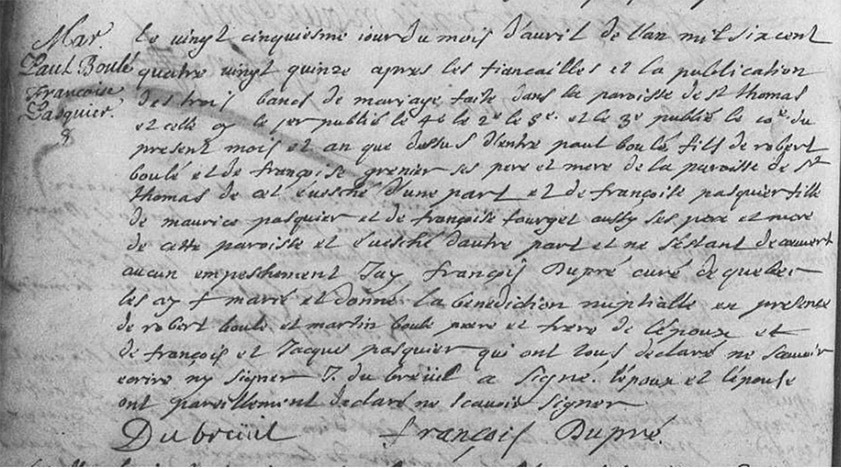 Mar.
Paul Boulé
Françoise
Pasquier.
Le vingt cinquiesme jour du mois d'avril de l'an mil six cent
quatre vingt quinze apres les fiancailles et la publication
des trois bancs de mariage faite dans la paroisse de st thomas
et celle cy le 1er publié le 4e le 2e le 8e. et le 3e publié le 10e. du
present mois et an que dessus d'entre paul boulé fils de robert
boulé et de françoise grenier ses pere et mere de la paroisse de st
thomas de cet evesché d'une part et de françoise pasquier fille
de maurice pasquier et de françoise fourget aussy ses pere et mere
de cette paroisse et Evesché d'autre part et ne s'estant decouvert
aucun empeschement Jay françois Dupré curé de quebec
les ay marié et donné la benediction nuptialle en presence
de robert boulé et martin boulé pere et frere de l'époux et
de françois et Jacques pasquier qui ont tous declaré ne scavoir
ecrire ny signer J. du breüil a signé. l'époux et l'épouse
ont pareillement declaré ne scavoir signer
Dubreüil françois Dupré